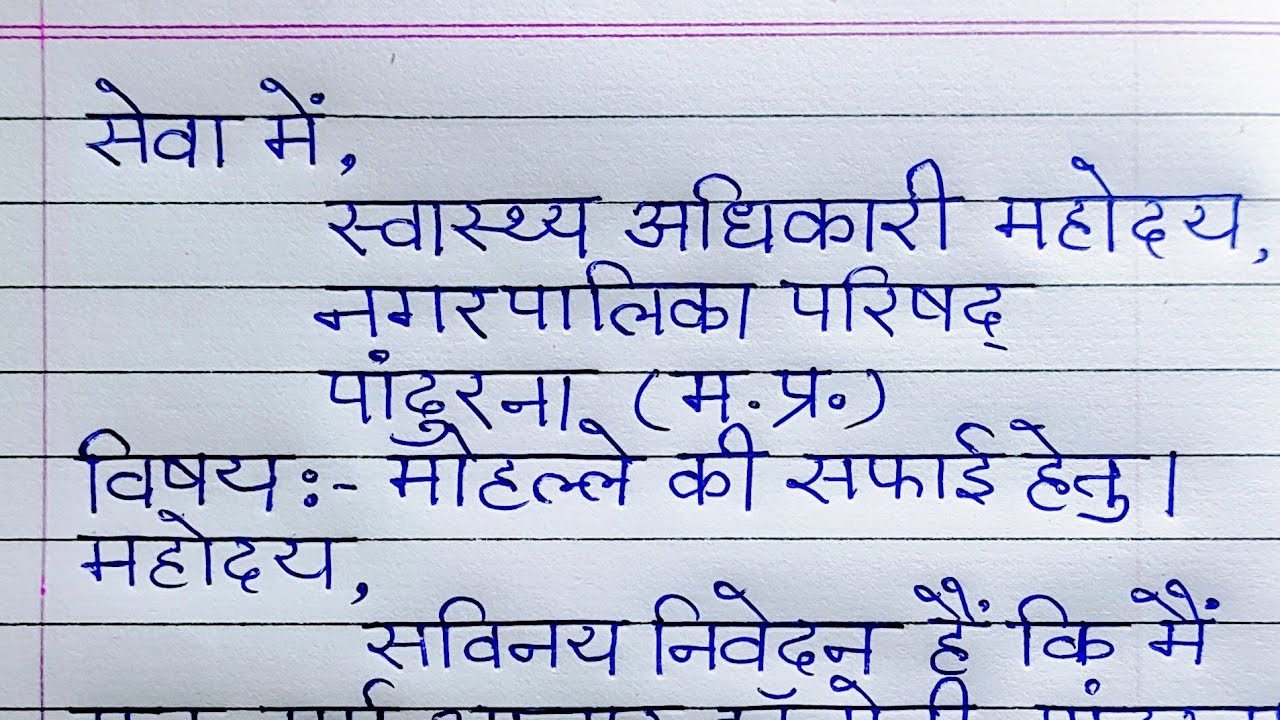 सेवा में,
स्वास्थ्य अधिकारी महोदय,
नगरपालिका परिषद्
पांढुरना (म.प्र.)
विषय:- मोहल्ले की सफाई हेतु।
महोदय,
सविनय निवेदन हैं कि मैं